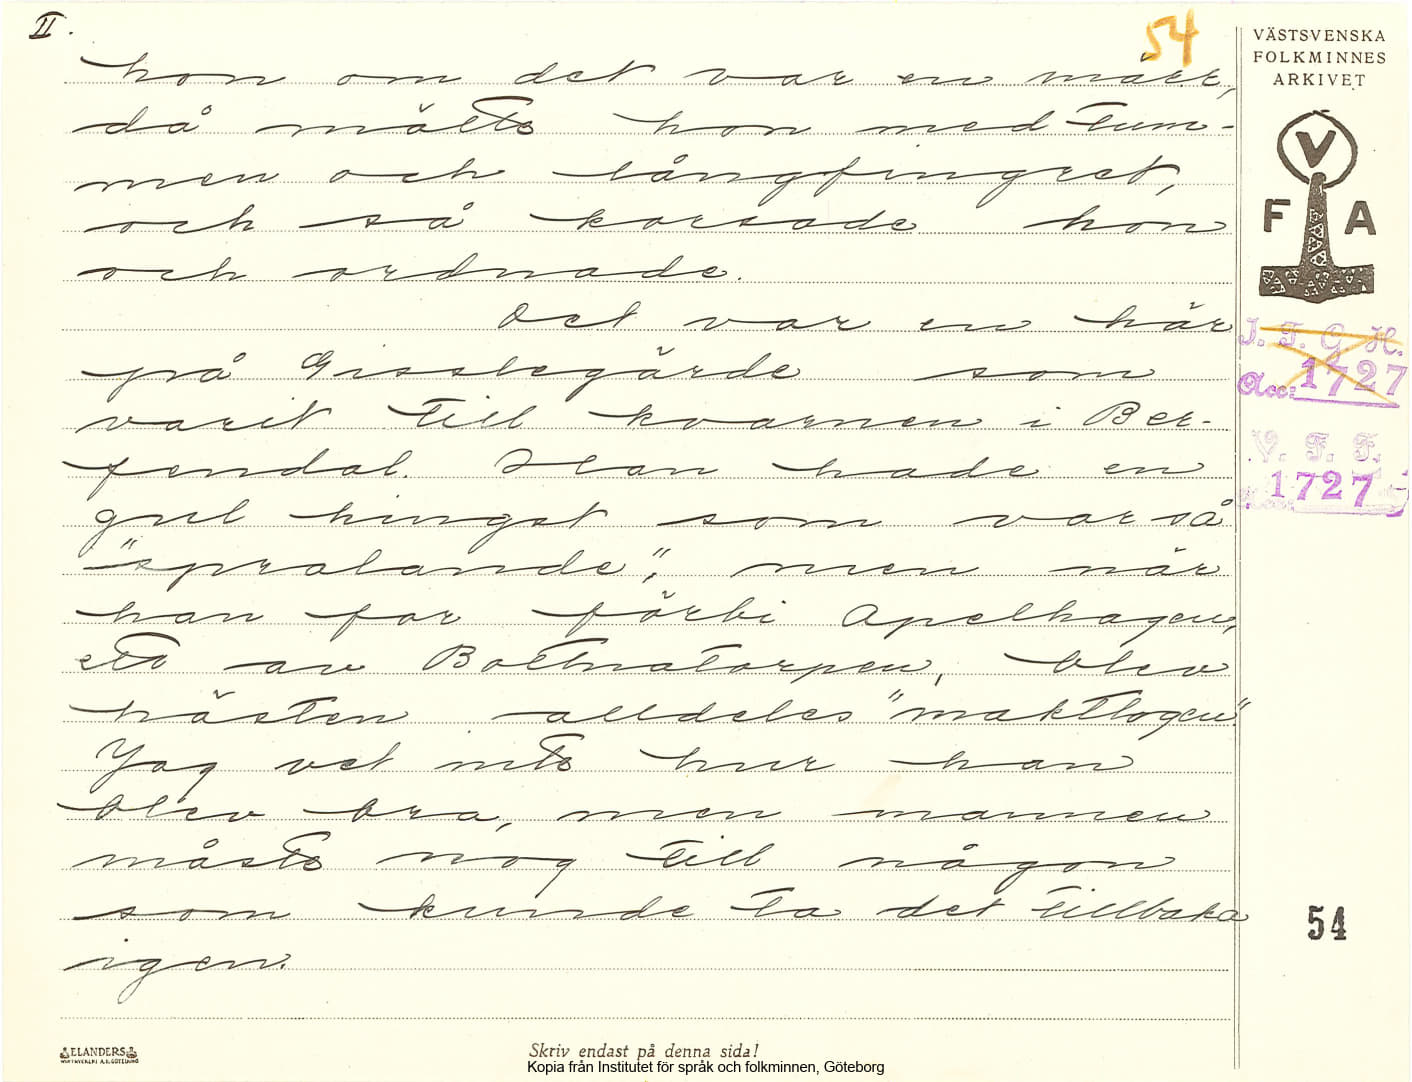 II.
54
VÄSTSVENSKA
FOLKMINNES
ARKIVET
V
F A
hon om det var en märr,
då mätte hon med tum-
men och långfingret,
och så korsade hon
och ordnade.
Det var en här
på Gisslegärde som
varit till kvarnen i Ber-
fendal. Han hade en
gul hingst som var så
"spralande", men när
han for förbi Apelhagen,
ett av Bottnatorpen, blev
hästen alldeles "maktlogen"
Jag vet inte hur han
blev bra, men mannen
måste nog till någon
som kunde ta det tillbaka
igen.
J. F. G. H.
Acc: 1727
V. F. F.
1727
54
ELANDERS
Skriv endast på denna sida!
Kopia från Institutet för språk och folkminnen, Göteborg